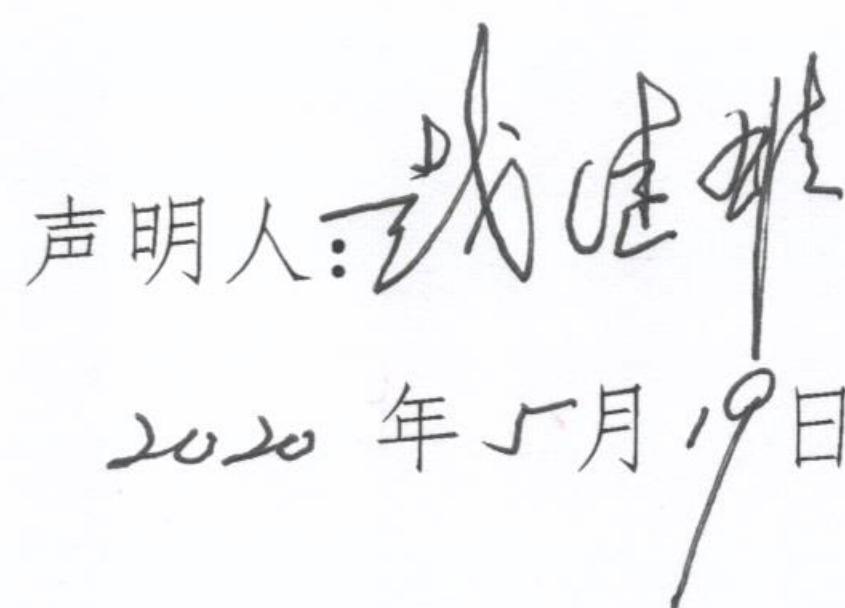 声明人:
2020 年 5 月 19 日